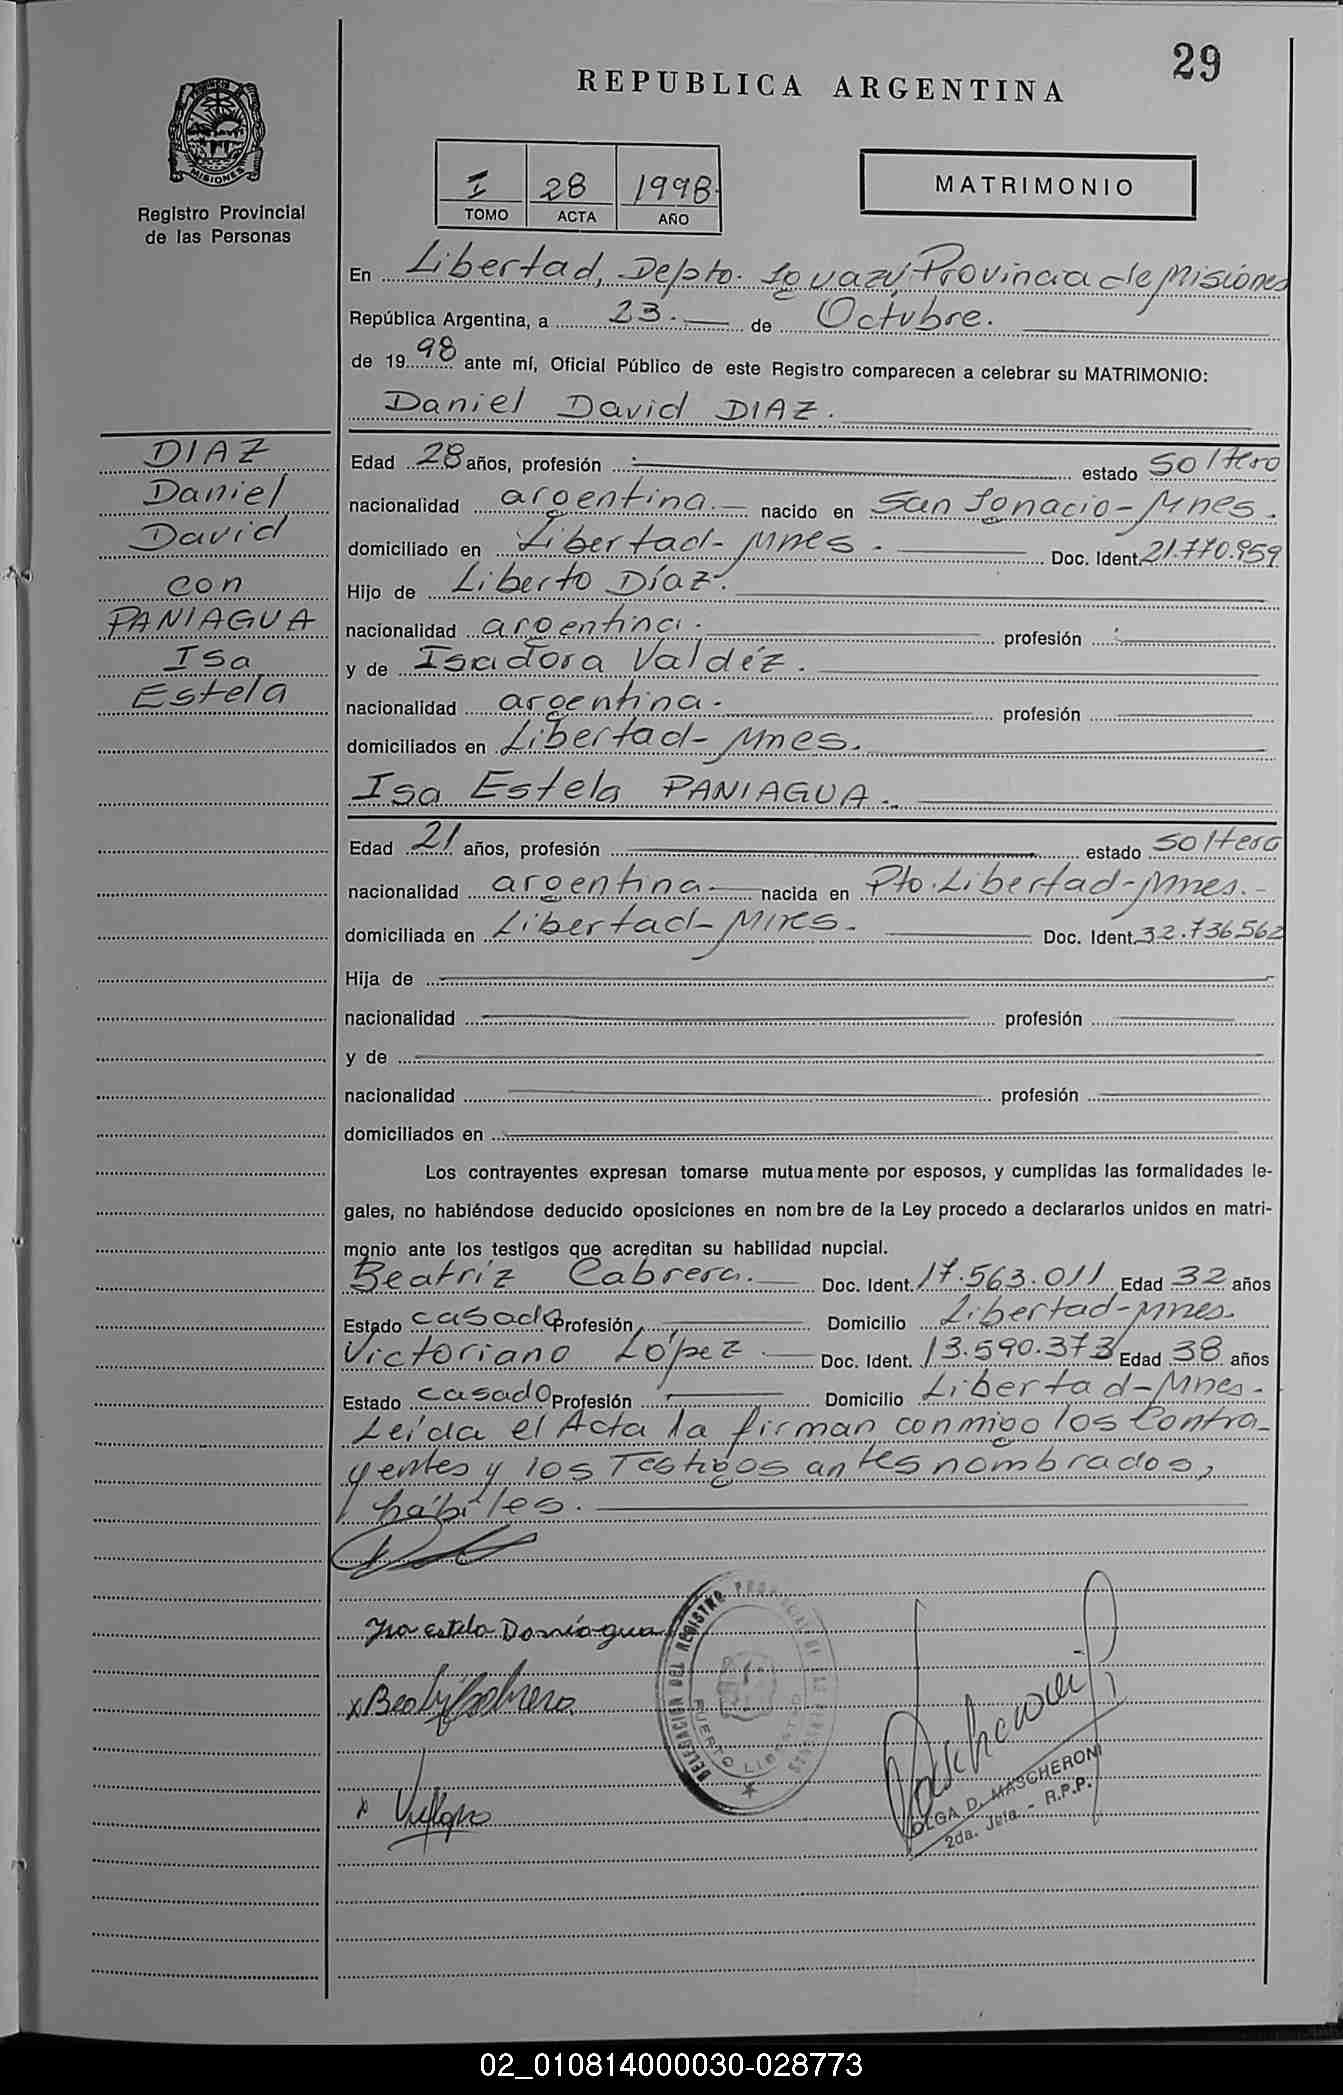 29
REPUBLICA ARGENTINA
MISIONES
Registro Provincial
de las Personas
I 28 1998
TOMO ACTA AÑO
MATRIMONIO
En Libertad, Depto. Iguazú, Provincia de Misiones
República Argentina, a 23. de Octubre.
de 1998 ante mí, Oficial Público de este Registro comparecen a celebrar su MATRIMONIO:
Daniel David DIAZ.
DIAZ
Daniel
David
con
PANIAGUA
Isa
Estela
Edad 28 años, profesión estado soltero
nacionalidad argentina. nacido en San Ignacio-Mnes.
domiciliado en Libertad-Mnes. Doc. Ident. 21.770.959
Hijo de Liberto Díaz.
nacionalidad argentina. profesión
y de Isadora Valdéz.
nacionalidad argentina. profesión
domiciliados en Libertad-Mnes.
Isa Estela PANIAGUA.
Edad 21 años, profesión estado soltera
nacionalidad argentina. nacida en Pto. Libertad-Mnes.-
domiciliada en Libertad-Mnes. Doc. Ident. 32.736562
Hija de
nacionalidad profesión
y de
nacionalidad profesión
domiciliados en
Los contrayentes expresan tomarse mutuamente por esposos, y cumplidas las formalidades le-
gales, no habiéndose deducido oposiciones en nombre de la Ley procedo a declararlos unidos en matri-
monio ante los testigos que acreditan su habilidad nupcial.
Beatriz Cabrera. Doc. Ident. 17.563.011 Edad 32 años
Estado casada Profesión Domicilio Libertad-Mnes.
Victoriano López Doc. Ident. 13.590.373 Edad 38 años
Estado casado Profesión Domicilio Libertad-Mnes.
Leída el Acta la firman conmigo los Contra-
yentes y los Testigos antes nombrados,
hábiles.
Isa estela Paniagua
DELEGACION DEL REGISTRO PROVINCIAL DE LAS PERSONAS
PUERTO LIBERTAD
x Beatriz Cabrera
x VLopez
Mascheroni
OLGA D. MASCHERONI
2da. Jefa. - R.P.P.
02_010814000030-028773